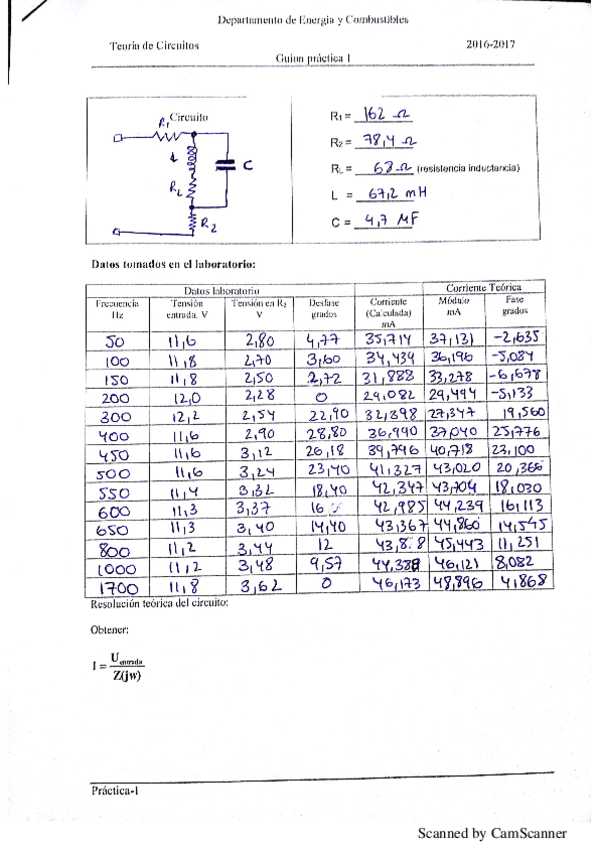 Departamento de Energía y Combustibles
Teoría de Circuitos 2016-2017
Guion práctica 1
Circuito
R1
L
RL
C
R2
R1 = 162 Ω
R2 = 78,4 Ω
RL = 63 Ω (resistencia inductancia)
L = 67,2 mH
C = 4,7 MF
Datos tomados en el laboratorio:
Datos laboratorio Corriente Teórica
Frecuencia Hz Tensión entrada, V Tensión en R2 V Desfase grados Corriente (Calculada) mA Módulo mA Fase grados
50 11,6 2,80 4,77 35,714 37,131 -2,635
100 11,8 2,70 3,60 34,439 36,196 -5,084
150 11,8 2,50 2,72 31,888 33,278 -6,678
200 12,0 2,28 0 29,082 29,494 -5,133
300 12,2 2,54 22,90 32,398 27,347 19,560
400 11,6 2,90 28,80 36,990 37,040 25,776
450 11,6 3,12 26,18 39,796 40,718 23,100
500 11,6 3,24 23,40 41,327 43,020 20,366
550 11,4 3,32 18,40 42,347 43,704 18,030
600 11,3 3,37 16 42,985 44,239 16,113
650 11,3 3,40 14,40 43,367 44,860 14,545
800 11,2 3,44 12 45,443 11,251
1000 11,2 3,48 9,57 44,388 46,121 8,082
1700 11,8 3,62 0 46,173 48,896 4,868
Resolución teórica del circuito:
Obtener:
I = Uentrada / Z(jw)
Práctica-1
Scanned by CamScanner